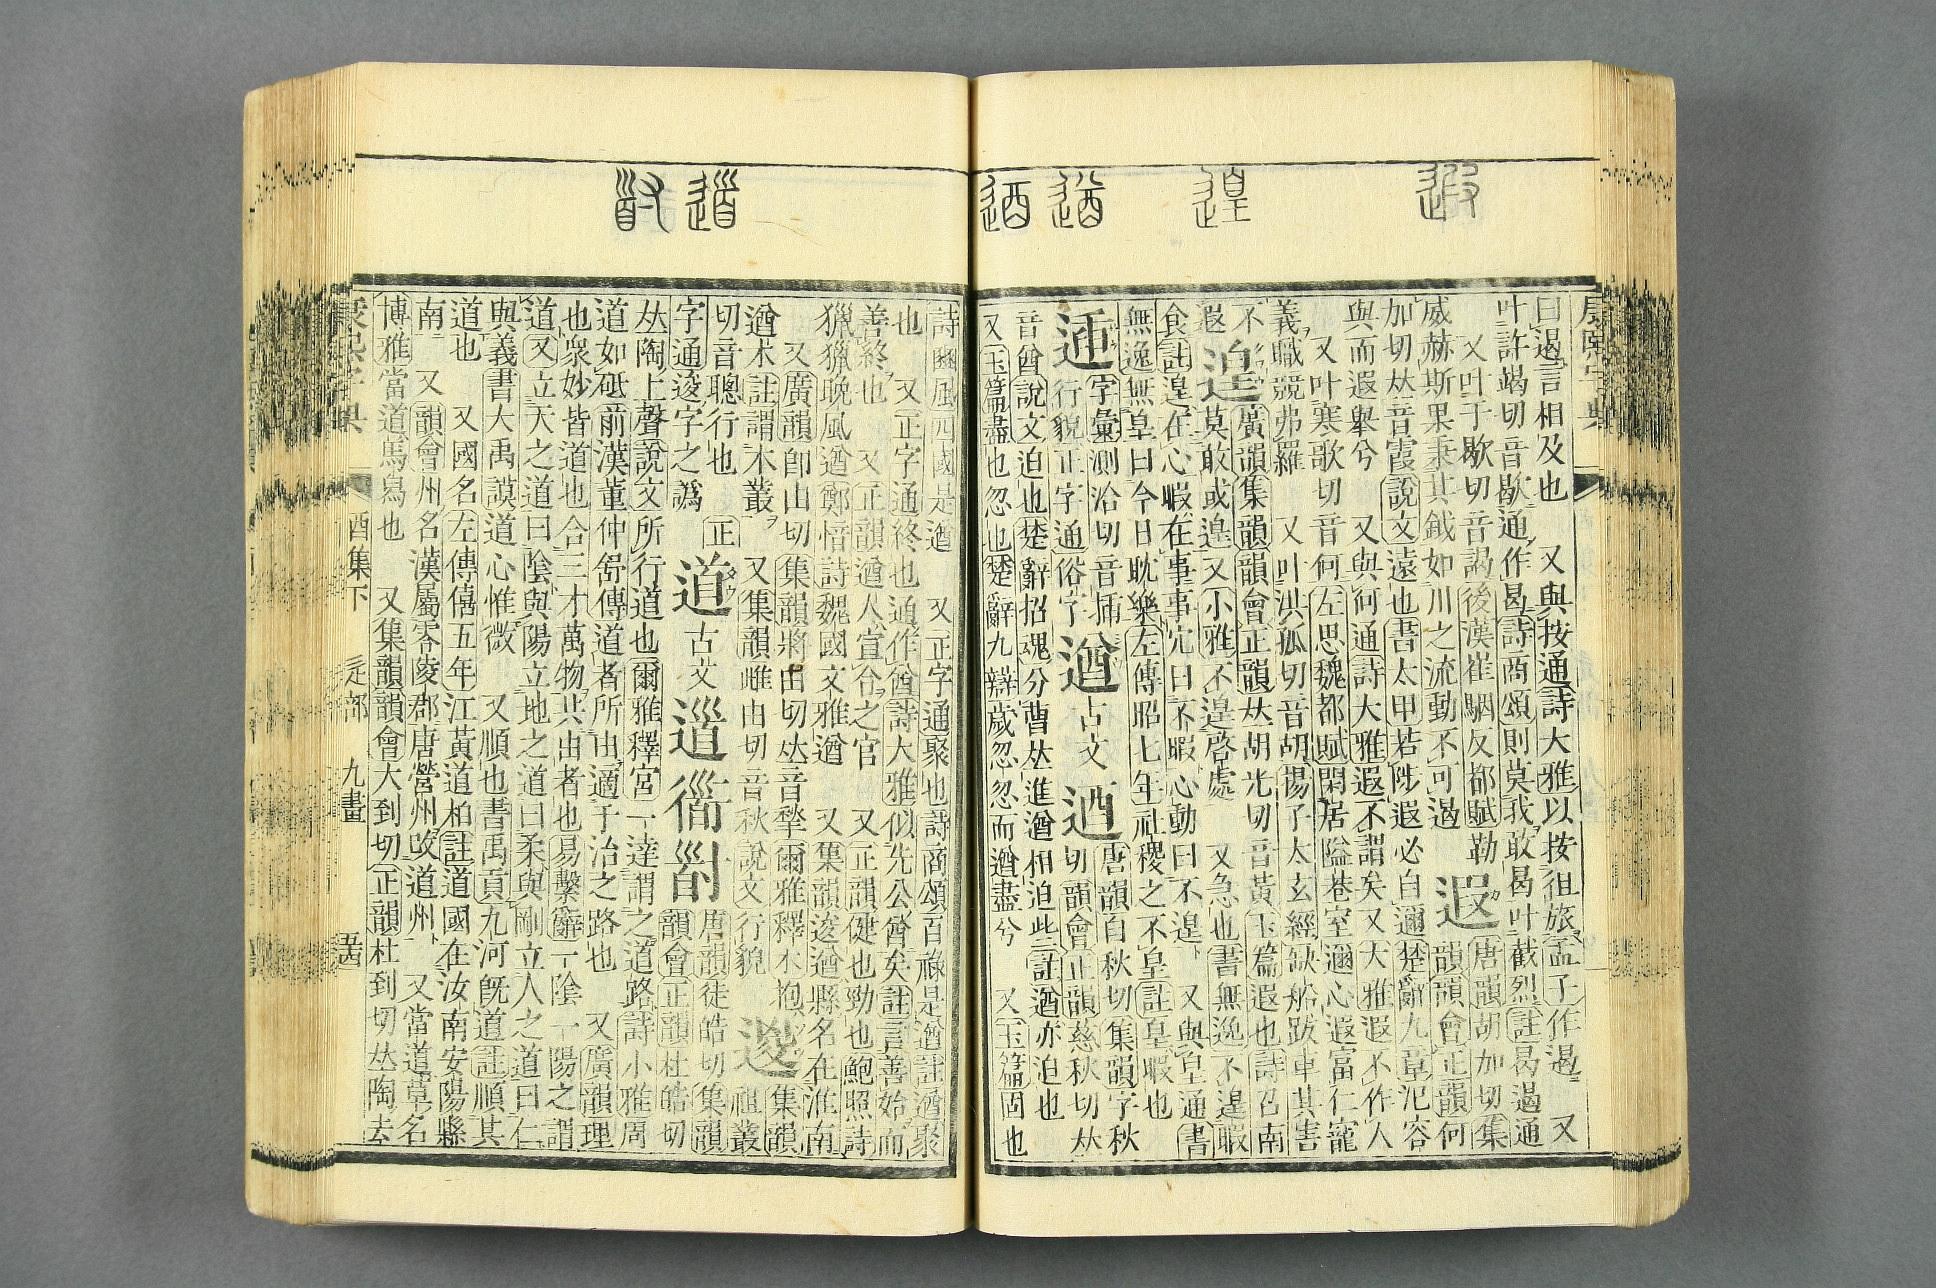 康熙字典
曰遏言相及也 又與按通詩大雅以按徂旅孟子作遏 又
叶許竭切音歇通作曷詩商頌則莫我敢曷叶截烈註曷遏通
又叶于歇切音謁後漢崔駰反都賦勒
威赫斯果秉其鉞如川之流動不可遏
遐 唐韻胡加切集
韻韻會正韻何
加切𠀤音霞說文遠也書太甲若陟遐必自邇楚辭九章氾容
與而遐舉兮 又與何通詩大雅遐不謂矣又大雅遐不作人
又叶寒歌切音何左思魏都賦閑居隘巷室邇心遐富仁寵
義職競弗羅 又叶洪孤切音胡揚子太玄經缺船跋車其害
不遐
遑 廣韻集韻韻會正韻𠀤胡光切音黃玉篇遐也詩召南
莫敢或遑又小雅不遑啓處 又急也書無逸不遑暇
食註遑在心暇在事事宂曰不暇心動曰不遑 又與皇通書
無逸無皇曰今日耽樂左傳昭七年社稷之不皇註皇暇也
字彙測洽切音插
行貌正字通俗字
遒 古文 逎
唐韻自秋切集韻字秋
切韻會正韻慈秋切𠀤
音酋說文迫也楚辭招魂分曹𠀤進遒相迫此三註遒亦迫也
又玉篇盡也忽也楚辭九辯歲忽忽而遒盡兮 又玉篇固也
詩豳風四國是遒 又正字通聚也詩商頌百祿是遒註遒聚
也 又正字通終也通作酋詩大雅似先公酋矣註言善始而
善終也 又正韻遒人宣令之官 又正韻健也勁也鮑照詩
獵獵晚風遒鄭愔詩魏國文雅遒 又集韻逡遒縣名在淮南
又廣韻卽由切集韻將由切𠀤音揫爾雅釋木抱
遒木註謂木叢 又集韻雌由切音秋說文行貌
集韻
祖叢
切音聰行也 正
字通逡字之譌
道 古文
唐韻徒皓切集韻
韻會正韻杜皓切
𠀤陶上聲說文所行道也爾雅釋宮一達謂之道路詩小雅周
道如砥前漢董仲舒傳道者所由適于治之路也 又廣韻理
也衆妙皆道也合三才萬物共由者也易繫辭一陰一陽之謂
道又立天之道曰陰與陽立地之道曰柔與剛立人之道曰仁
與義書大禹謨道心惟微 又順也書禹貢九河旣道註順其
道也 又國名左傳僖五年江黃道柏註道國在汝南安陽縣
南 又韻會州名漢屬零陵郡唐營州改道州 又當道草名
博雅當道馬舄也 又集韻韻會大到切正韻杜到切𠀤陶去
康熙字典 酉集下 辵部 九畫